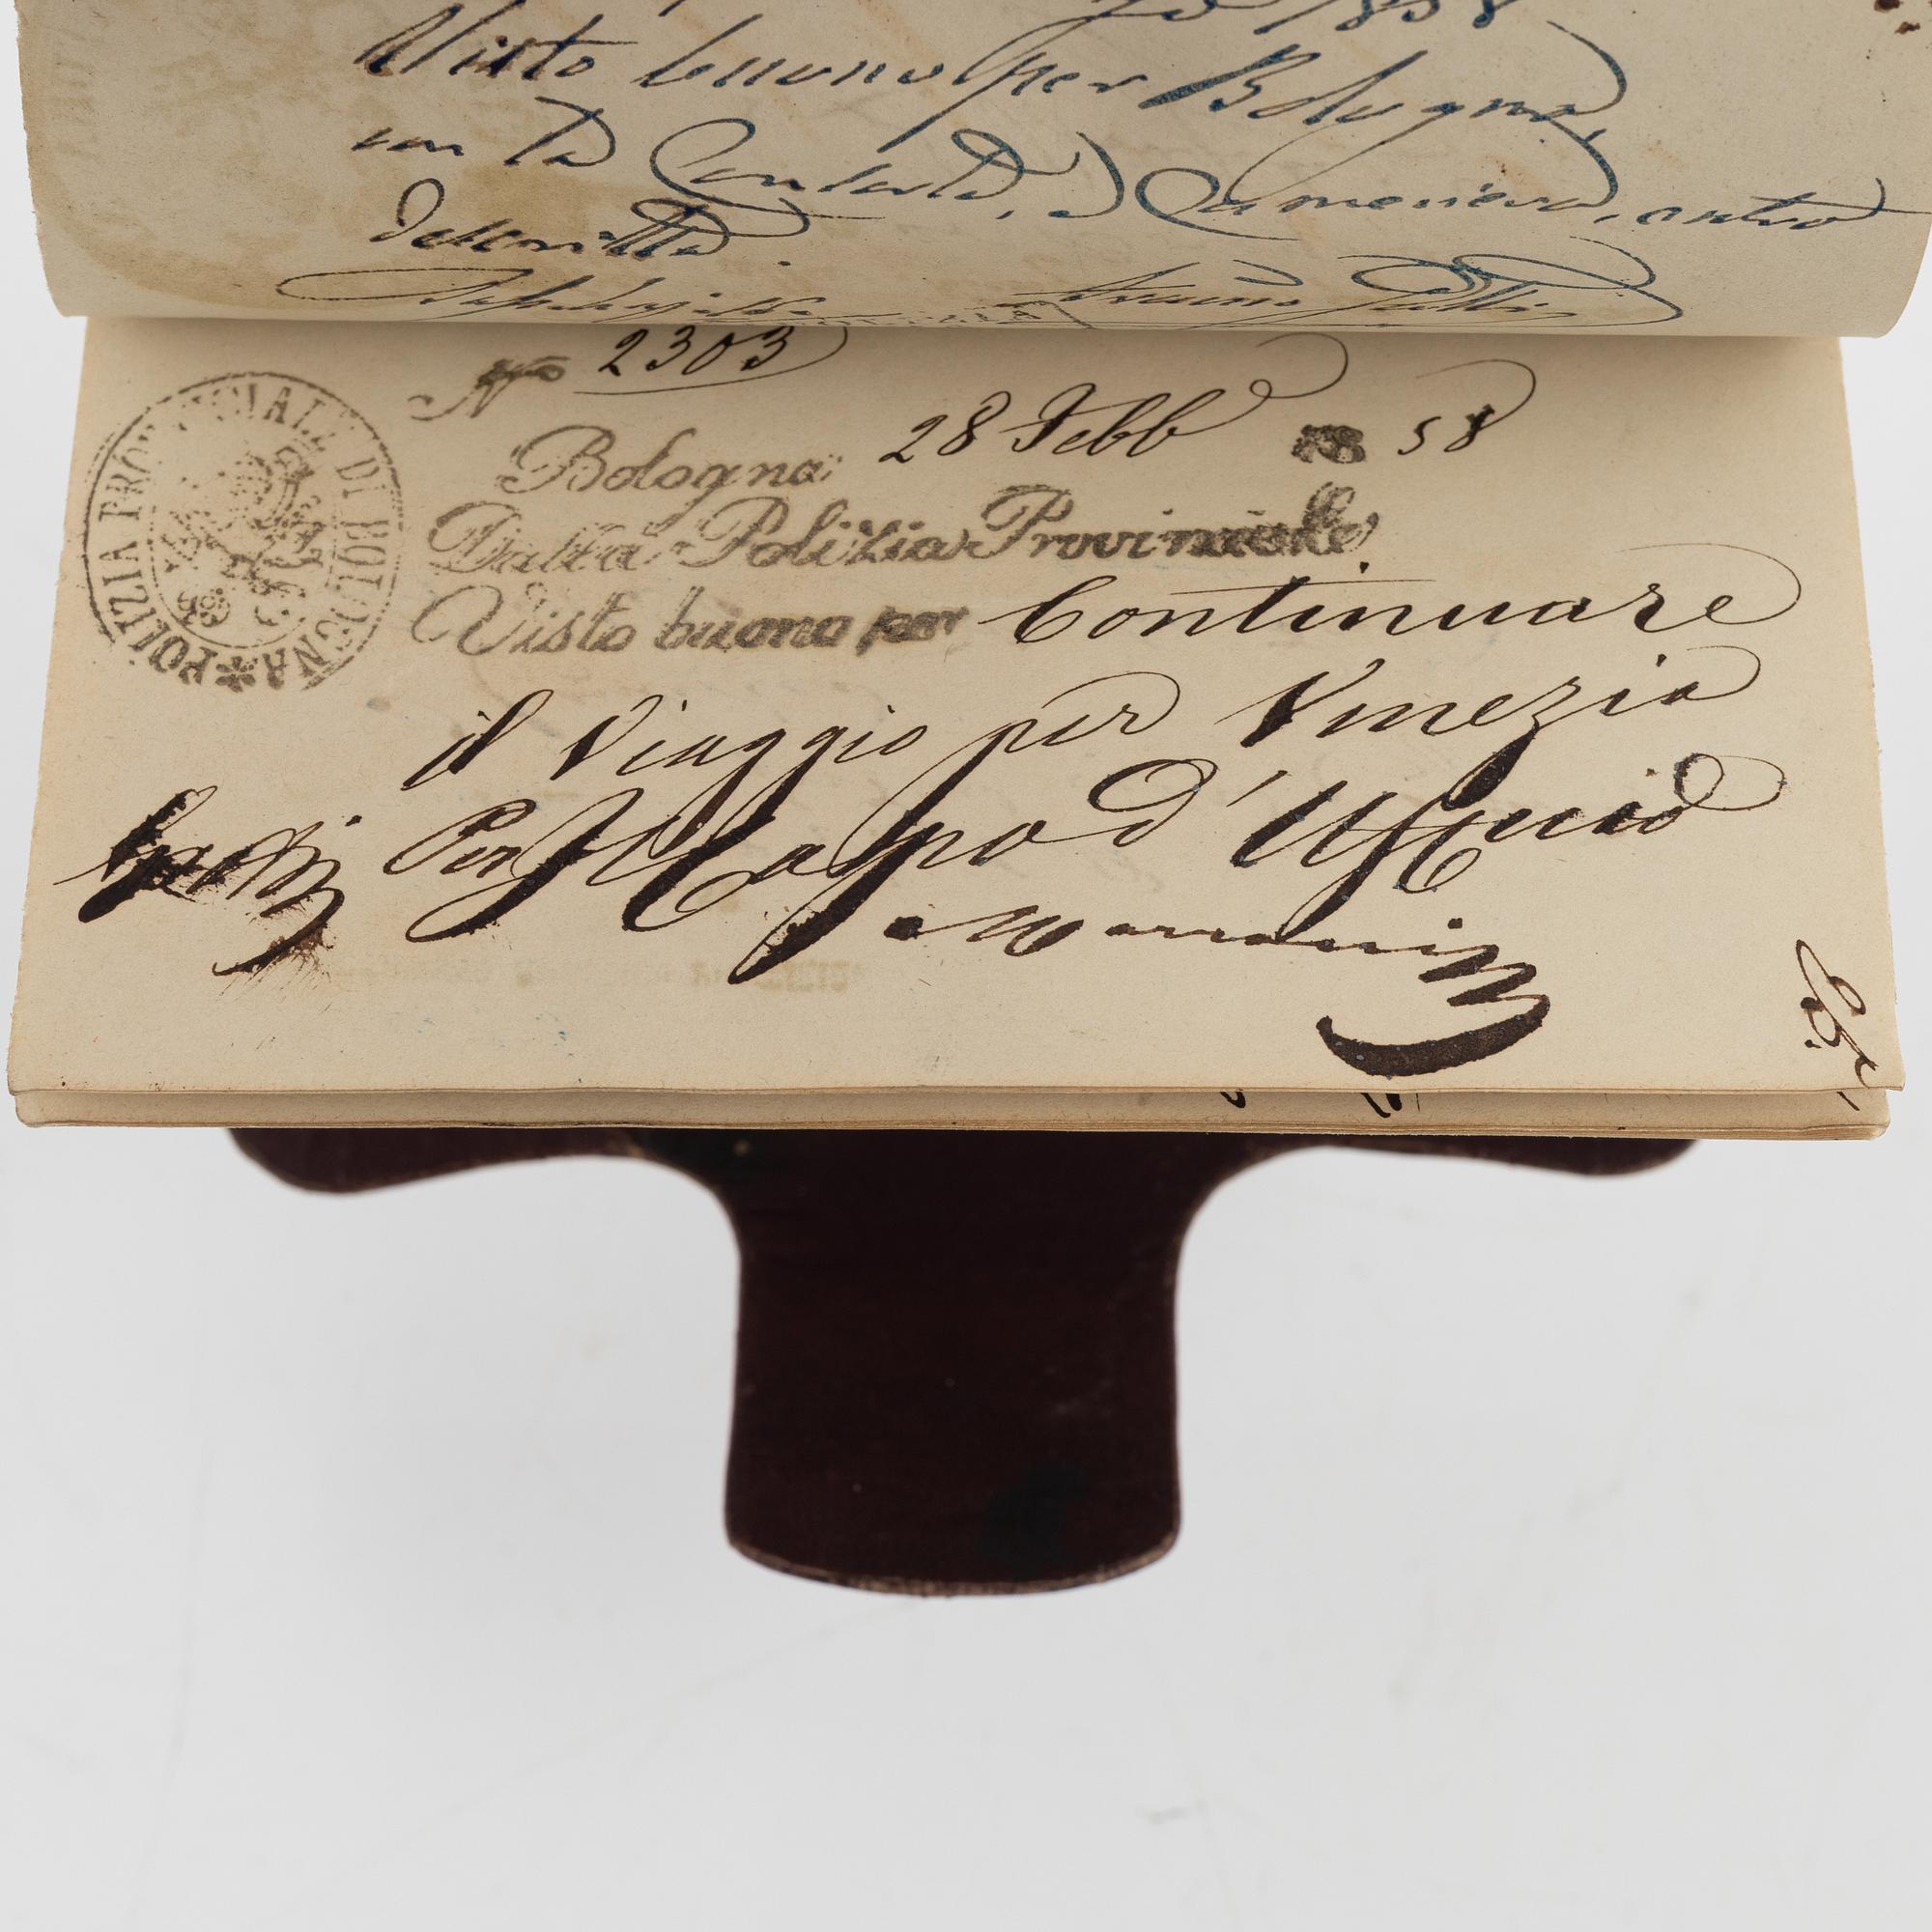 1858
Visto buono per Bologna
con la Contessa, e Cameriera, entro
descritta.
No 2303
Bologna 28 Febb 18 58
Dalla Polizia Provinciale
Visto buono per Continuare
il Viaggio per Venezia
Per Il Capo d'Ufficio
POLIZIA PROVINCIALE DI BOLOGNA